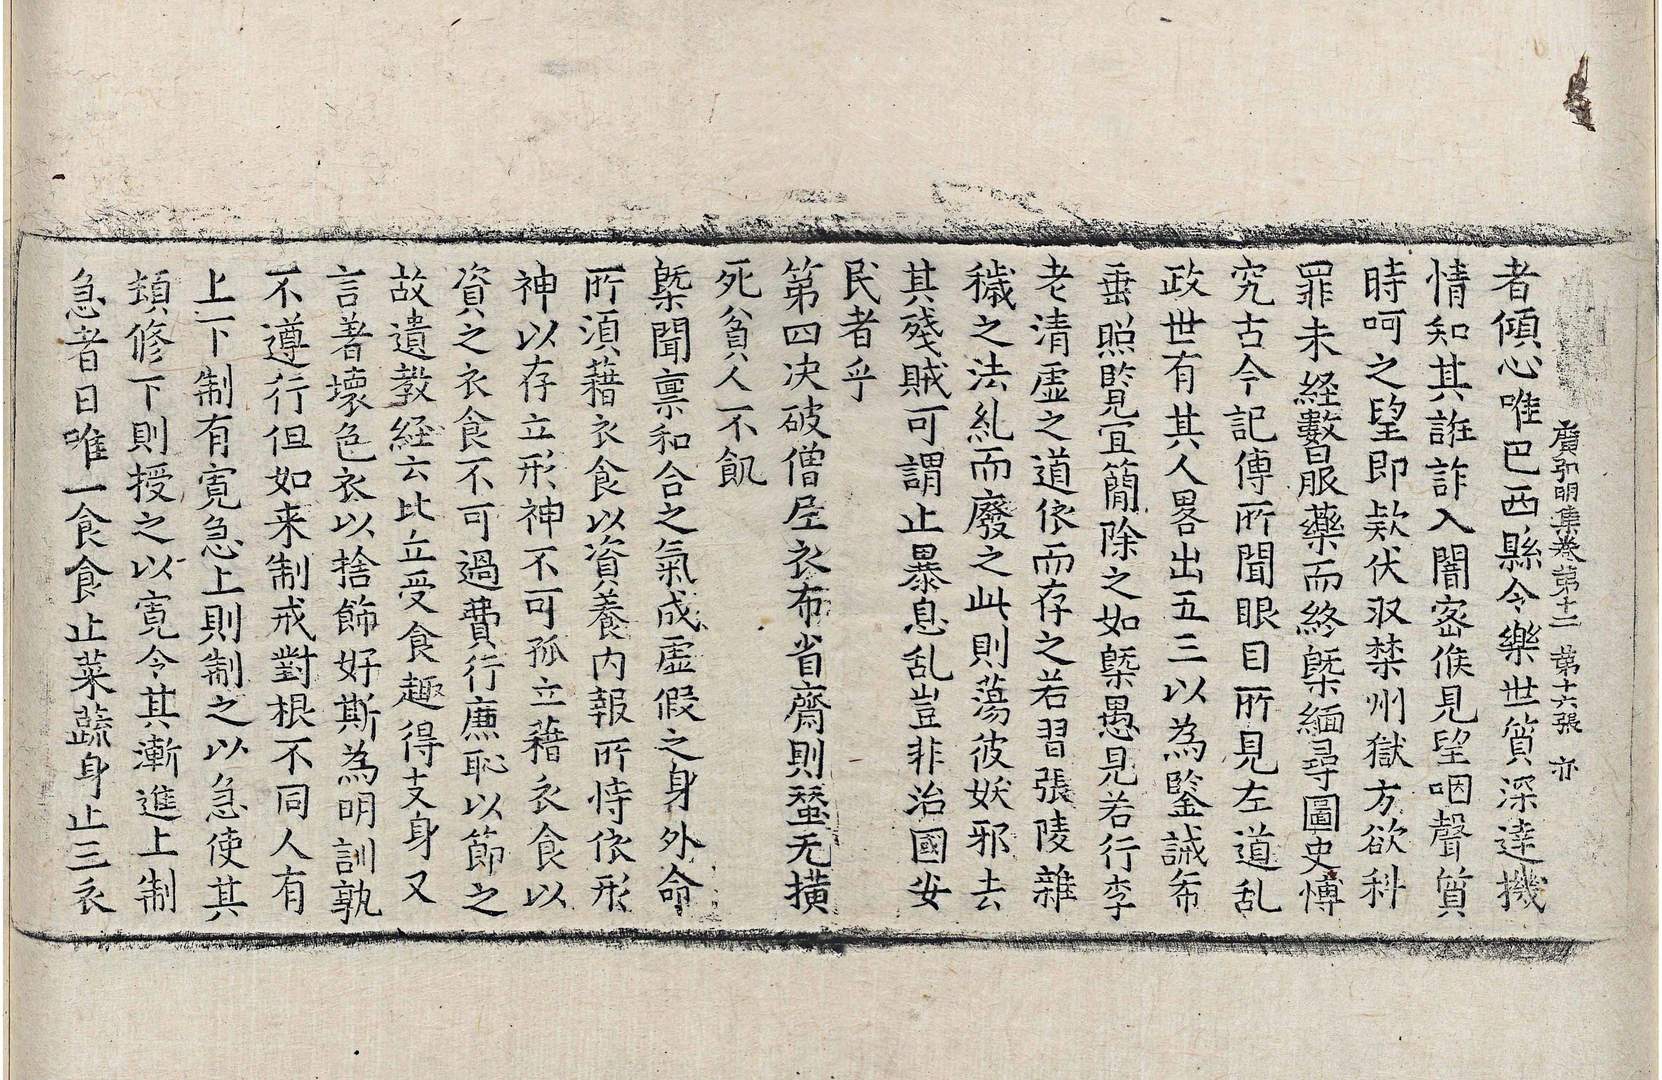 廣弘明集卷第十二 第十六張 亦
者傾心唯巴西縣令樂世質深達機
情知其誑詐入闇密候見望咽聲質
時呵之望即欵伏収禁州獄方欲科
罪未經數日服藥而終槩緬尋圖史慱
究古今記傳所聞眼目所見左道乱
政世有其人畧出五三以為鑒誡希
垂照覽冝簡除之如槩愚見若行李
老清虛之道依而存之若習張陵雜
穢之法糺而廢之此則蕩彼妖邪去
其殘賊可謂止暴息乱豈非治國安
民者乎
第四决破僧尼衣布省齋則蝅无撗
死貧人不飢
槩聞禀和合之氣成虛假之身外命
所湏藉衣食以資養内報所恃依形
神以存立形神不可孤立藉衣食以
資之衣食不可過費行廉恥以節之
故遺教經云比丘受食趣得支身又
言著壞色衣以捨飾好斯為明訓孰
不遵行但如来制戒對根不同人有
上下制有寛急上則制之以急使其
頓修下則授之以寛令其漸進上制
急者日唯一食食止菜蔬身止三衣